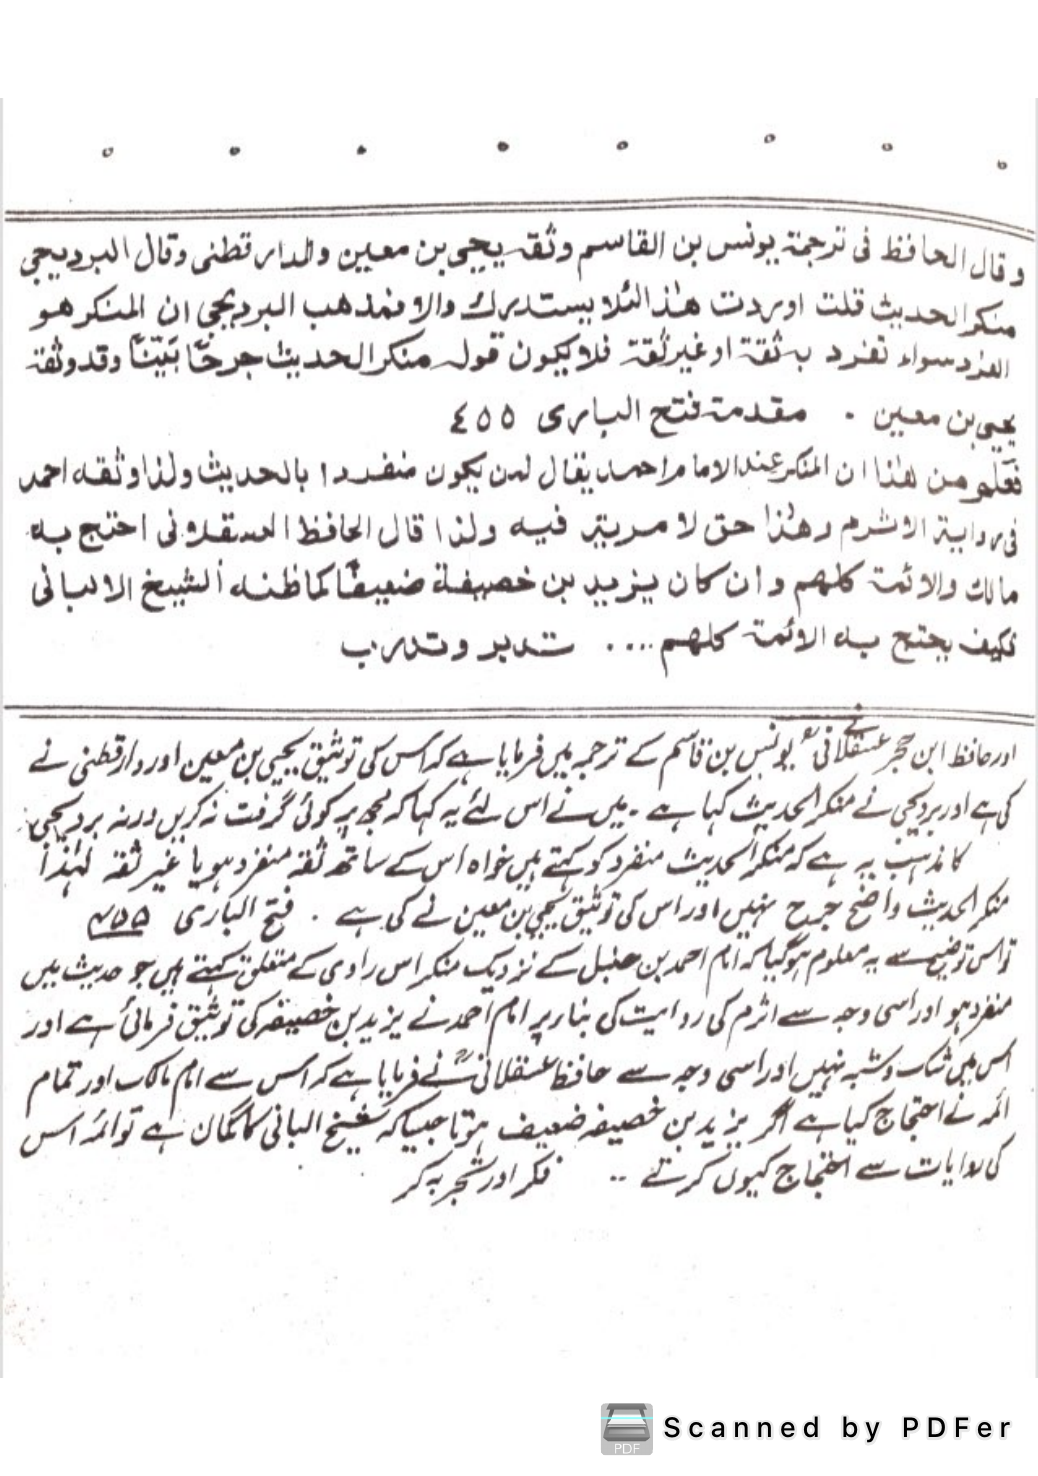 وقال الحافظ فی ترجمة یونس بن القاسم وثقه یحیی بن معین والدارقطنی وقال البردیجی
منکر الحدیث قلت اوردت هذا لئلا یستدرك والا فمذهب البردیجی ان المنکر هو
الفرد سواء تفرد به ثقة او غیر ثقة فلا یکون قوله منکر الحدیث جرحًا بَیّنًا وقد وثقه
یحیی بن معین . مقدمة فتح الباری ٤٥٥
فعلم من هذا ان المنکر عند الامام احمد یقال لمن یکون منفردا بالحدیث ولذا وثقه احمد
فی روایة الاشرم وهذا حق لا مریة فیه ولذا قال الحافظ العسقلانی احتج به
مالك والائمة کلهم وان کان یزید بن خصیفة ضعیفًا کما ظنه الشیخ الالبانی
فکیف یحتج به الائمة کلهم .... تدبر وتدرب
اور حافظ ابن حجر عسقلانیؒ نے یونس بن قاسم کے ترجمہ میں فرمایا ہے کہ اس کی توثیق یحیی بن معین اور دارقطنی نے
کی ہے اور بردیجی نے منکر الحدیث کہا ہے ۔ میں نے اس لئے یہ کہا کہ مجھ پر کوئی گرفت نہ کریں ورنہ بردیجی
کا مذہب یہ ہے کہ منکر الحدیث منفرد کو کہتے ہیں خواہ اس کے ساتھ ثقہ منفرد ہو یا غیر ثقہ لہٰذا
منکر الحدیث واضح جرح نہیں اور اس کی توثیق یحیی بن معین نے کی ہے ۔ فتح الباری ۴۵۵
تو اس توضیح سے یہ معلوم ہوگیا کہ امام احمد بن حنبل کے نزدیک منکر اس راوی کے متعلق کہتے ہیں جو حدیث میں
منفرد ہو اور اسی وجہ سے اثرم کی روایت کی بناء پر امام احمد نے یزید بن خصیفہ کی توثیق فرمائی ہے اور
اس میں شک وشبہ نہیں اور اسی وجہ سے حافظ عسقلانیؒ نے فرمایا ہے کہ اس سے امام مالک اور تمام
ائمہ نے احتجاج کیا ہے اگر یزید بن خصیفہ ضعیف ہوتا جیسا کہ شیخ البانی کا گمان ہے تو ائمہ اس
کی روایات سے احتجاج کیوں کرتے .. فکر اور تجربہ کر
Scanned by PDFer
PDF